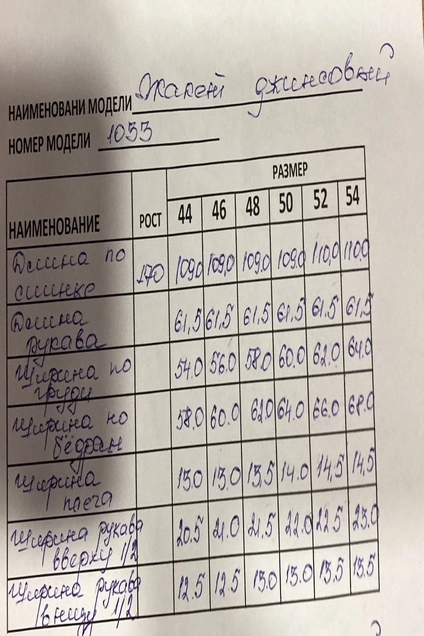 НАИМЕНОВАНИ МОДЕЛИ Жакет джинсовый
НОМЕР МОДЕЛИ 1033
НАИМЕНОВАНИЕ РОСТ РАЗМЕР
44 46 48 50 52 54
Длина по спинке 170 109,0 109,0 109,0 109,0 110,0 110,0
Длина рукава 61,5 61,5 61,5 61,5 61,5 61,5
Ширина по груди 54.0 56.0 58.0 60.0 62.0 64.0
Ширина по бёдрам 58.0 60.0 62.0 64.0 66.0 68.0
Ширина плеча 13.0 13.0 13,5 14.0 14,5 14,5
Ширина рукава вверху 1/2 20.5 21.0 21.5 22.0 22.5 23.0
Ширина рукава внизу 1/2 12.5 12.5 13.0 13.0 13.5 13.5